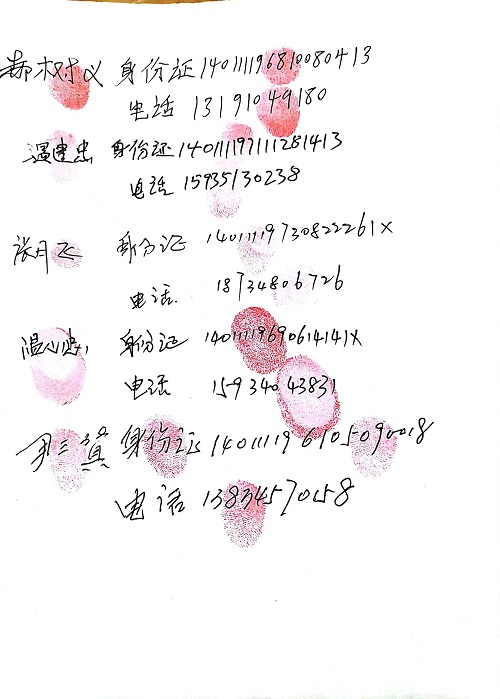 郝树义 身份证 140111196810080413
电话 13191049180
温建忠 身份证 140111197111281413
电话 15935130238
张月飞 身份证 14011119730822261X
电话. 18734806726
身份证 14011119690614141X
电话 15934043831
身份证 140111196105090018
电话 13834570158